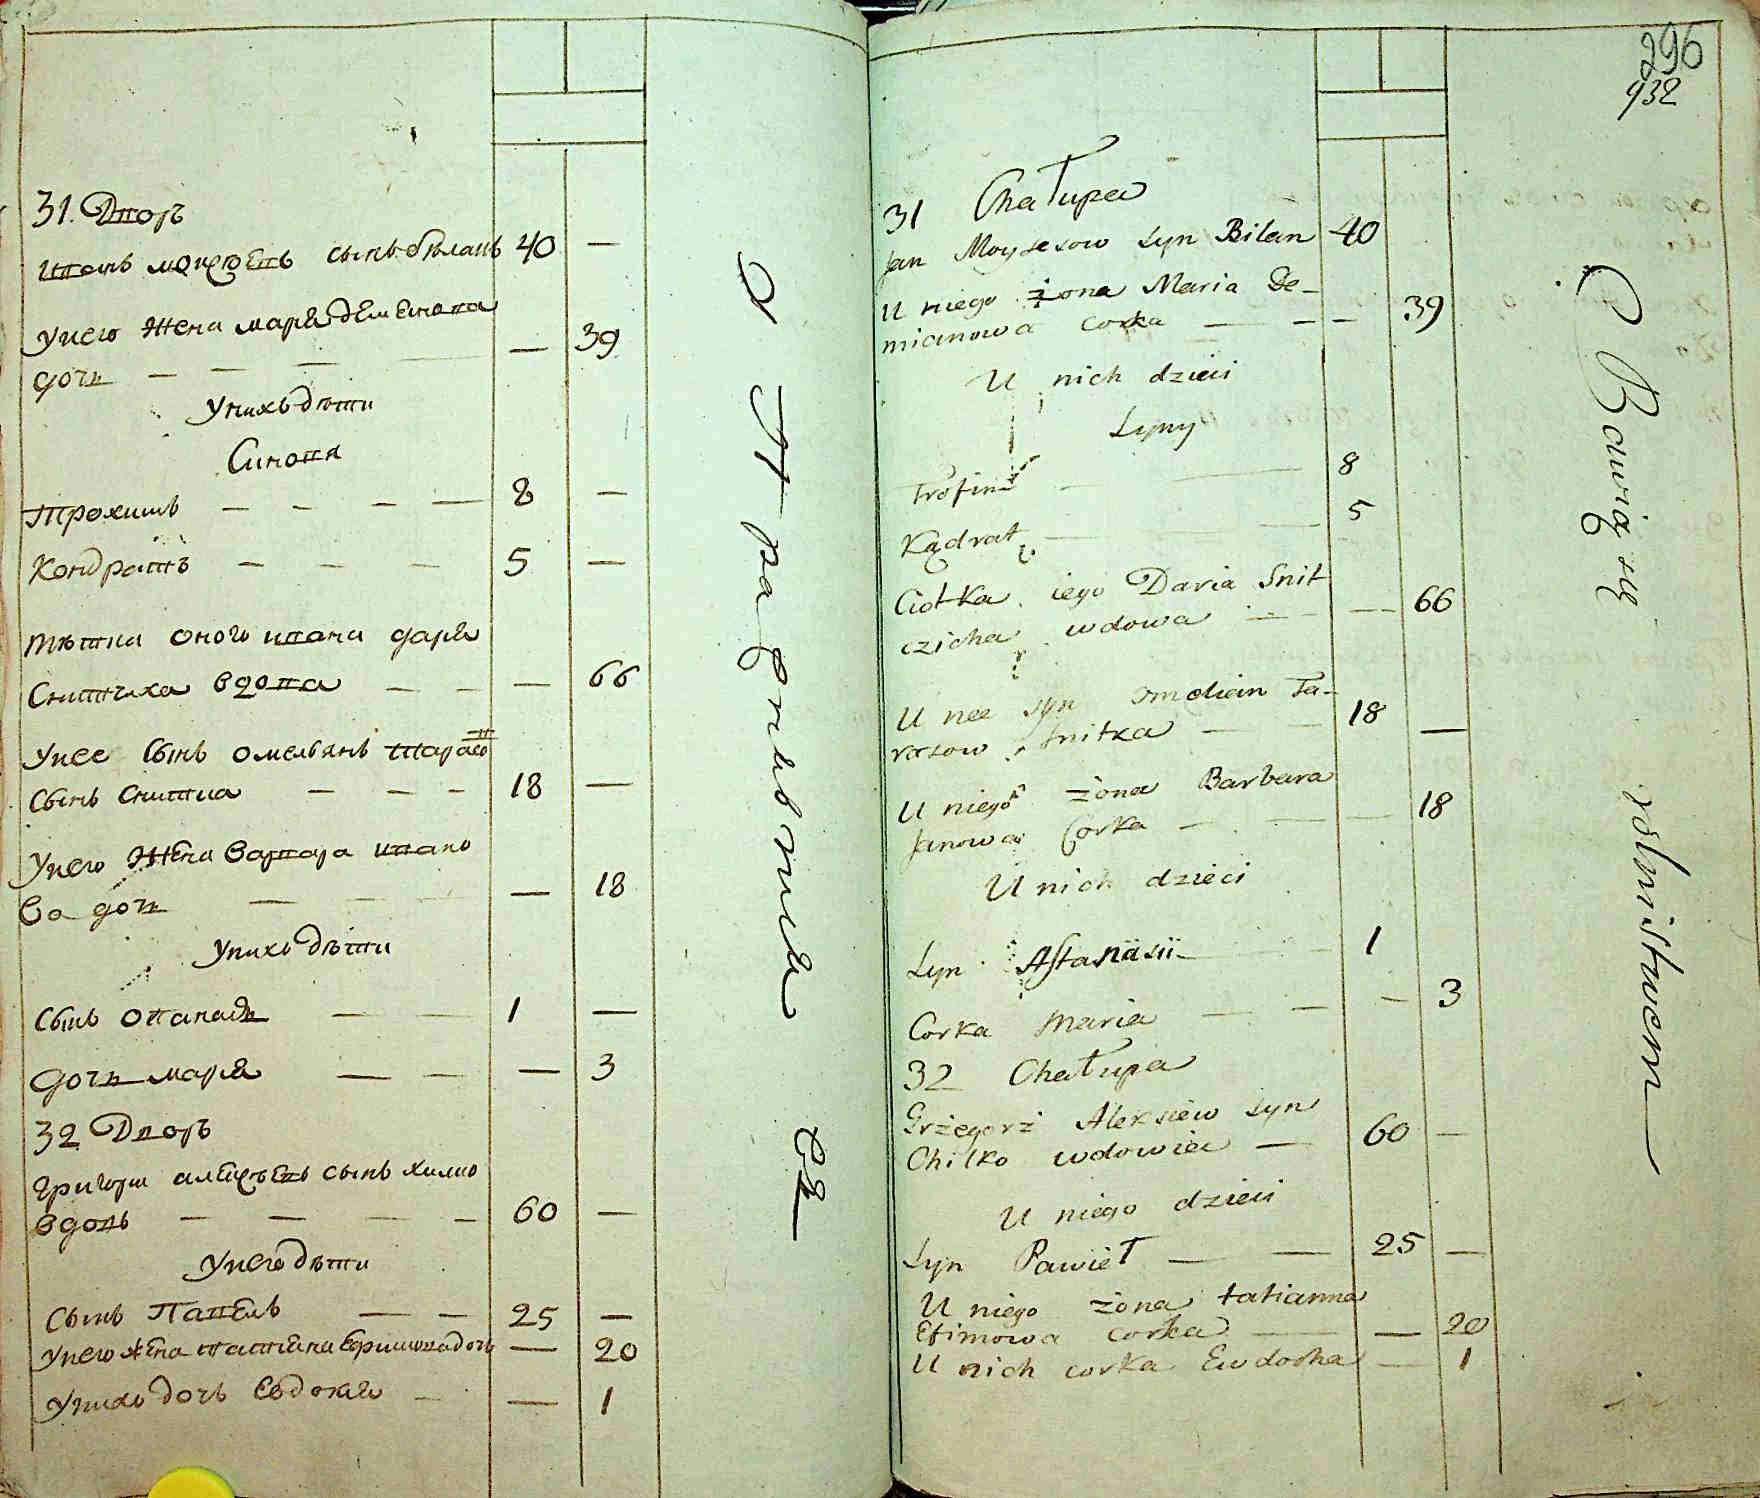 31. Дворъ
Иванъ моисѣевъ сынъ бѣланъ 40 —
унего жена марѣя демянова
дочь — — — — — 39
унихъ дѣти
Синовя
Трохимъ — — — — 8 —
Кондратъ — — — 5 —
тѣтка оного ивана даря
Снитчиха вдова — — — 66
унее сынъ омельянъ тарасов
сынъ снитка — — — 18 —
унего жена варвара ивано
ва дочь — — — — 18
унихъ дѣти
сынъ опанасъ — — 1 —
дочь маря — — — 3
32 Дворъ
григори алексѣевъ сынъ хилко
вдовъ — — — — 60 —
унего дѣти
сынъ Павелъ — — 25 —
унего жена татияна ефимова дочь — 20
унихъ дочь Евдокия — — 1
296
932
31 Chałupa
Jan Moysesow syn Bilan 40
U niego żona Maria De-
mianowa corka — — — 39
U nich dzieci
Syny
Trofim — — 8
Kądrat — — 5
Ciotka iego Daria Snit
czicha wdowa — — — 66
U nee syn Omelian Ta-
rasow Snitka — — 18 —
U niego żona Barbara
Janowa Corka — — — 18
U nich dzieci
Syn Aftanasii — — 1
Corka Maria — — — 3
32 Chałupa
Grzegorz Aleksiew syn
Chilko wdowiec — 60 —
U niego dzieci
Syn Pawieł — — 25 —
U niego żona tatianna
Efimowa corka — — 20
U nich corka Ewdocha — 1
Bawią się rolnistwem